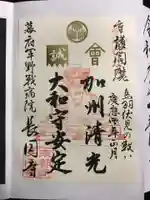 守護園隊
鳥羽伏見の戦い
慶應四年正月
會
誠
加州清光
大和守安定
幕府軍野戦病院 長円寺